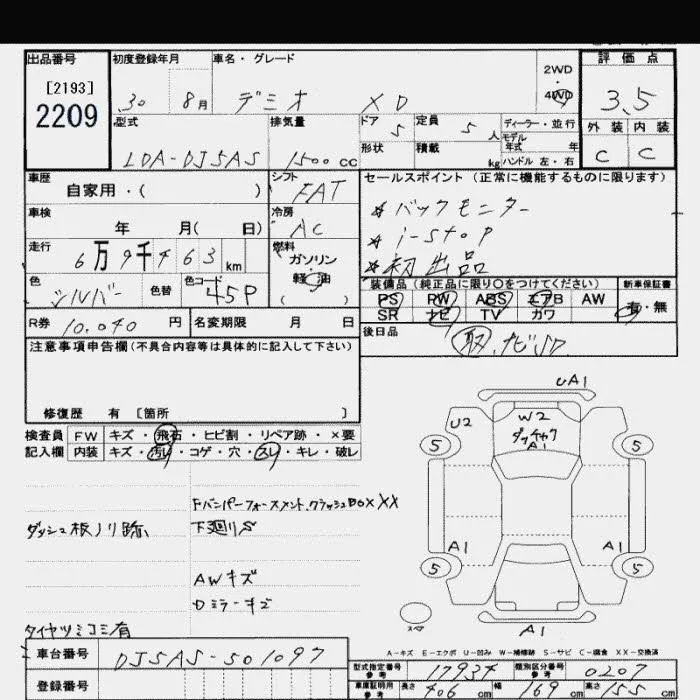 出品番号 初度登録年月 車名・グレード 2WD・4WD 評価点
[2193]
2209
30 8月 デミオ XD 3.5
型式 排気量 ドア 5 定員 5人 ディーラー・並行 外装 内装
モデル年式 年
LDA-DJ5AS 1500cc 形状 積載 kg ハンドル 左・右 C C
車歴 シフト セールスポイント (正常に機能するものに限ります)
自家用・( ) FAT
*バックモニター
車検 冷房
年 月( 日) AC
*i-stop
走行 6万9千463km 燃料 ガソリン・軽油 ( )
*初出品
色 シルバー 色替 色コード 45P
装備品 (純正品に限り○をつけてください) 新車保証書
PS PW ABS エアB AW 有・無
SR ナビ TV カワ
R券 10.040円 名変期限 月 日
後日品 取,ナビSD
注意事項申告欄(不具合内容等は具体的に記入して下さい)
修復歴 有 [箇所 ]
検査員記入欄 FW キズ・飛石・ヒビ割・リペア跡・×要
内装 キズ・汚レ・コゲ・穴・スレ・キレ・破レ
Fバンパーフォースメント,クラッシュBOX XX
ダッシュ板ノリ跡、 下廻りS
AWキズ
Dミラーキズ
タイヤツミコミ有
UA1
U2 W2
A1
5 5
A1 A1
5 5
スペア
A1
A-キズ E-エクボ U-凹み W-補修跡 S-サビ C-腐食 XX-交換済
車台番号 DJ5AS-501097
登録番号
型式指定番号 参考 17934 類別区分番号 参考 0207
車庫証明用 参考 長さ 406cm 幅 169cm 高さ 155cm